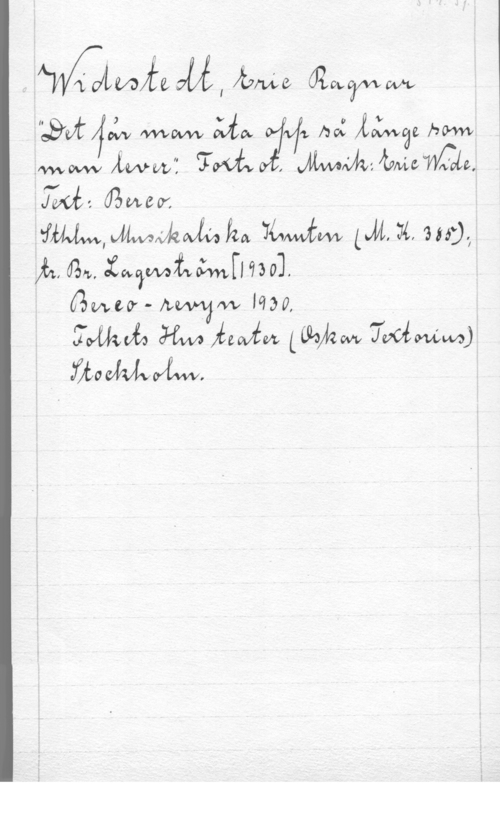 Widestedt, Eric Ragnar
"Det får man äta opp så länge som
man lever". Foxtrot. Musik: Eric Wide.
Text: Berco.
Sthlm, Musikaliska Knuten (M. K. 385),
tr. Br. Lagerström [1930].
Berco-revyn 1930.
Folkets Hus teater (Oskar Textorius)
Stockholm.